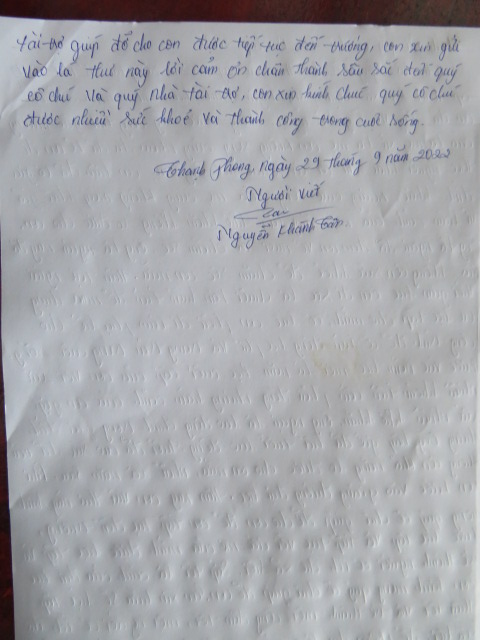 tài trợ giúp đỡ cho con được tiếp tục đến trường, con xin gửi
vào lá thư này lời cảm ơn chân thành sâu sắc đến quý
cô chú và quý nhà tài trợ, con xin kính chúc quý cô chú
được nhiều sức khoẻ và thành công trong cuộc sống.
Thạnh Phong, ngày 29 tháng 9 năm 2022
Người viết
Nguyễn Khánh